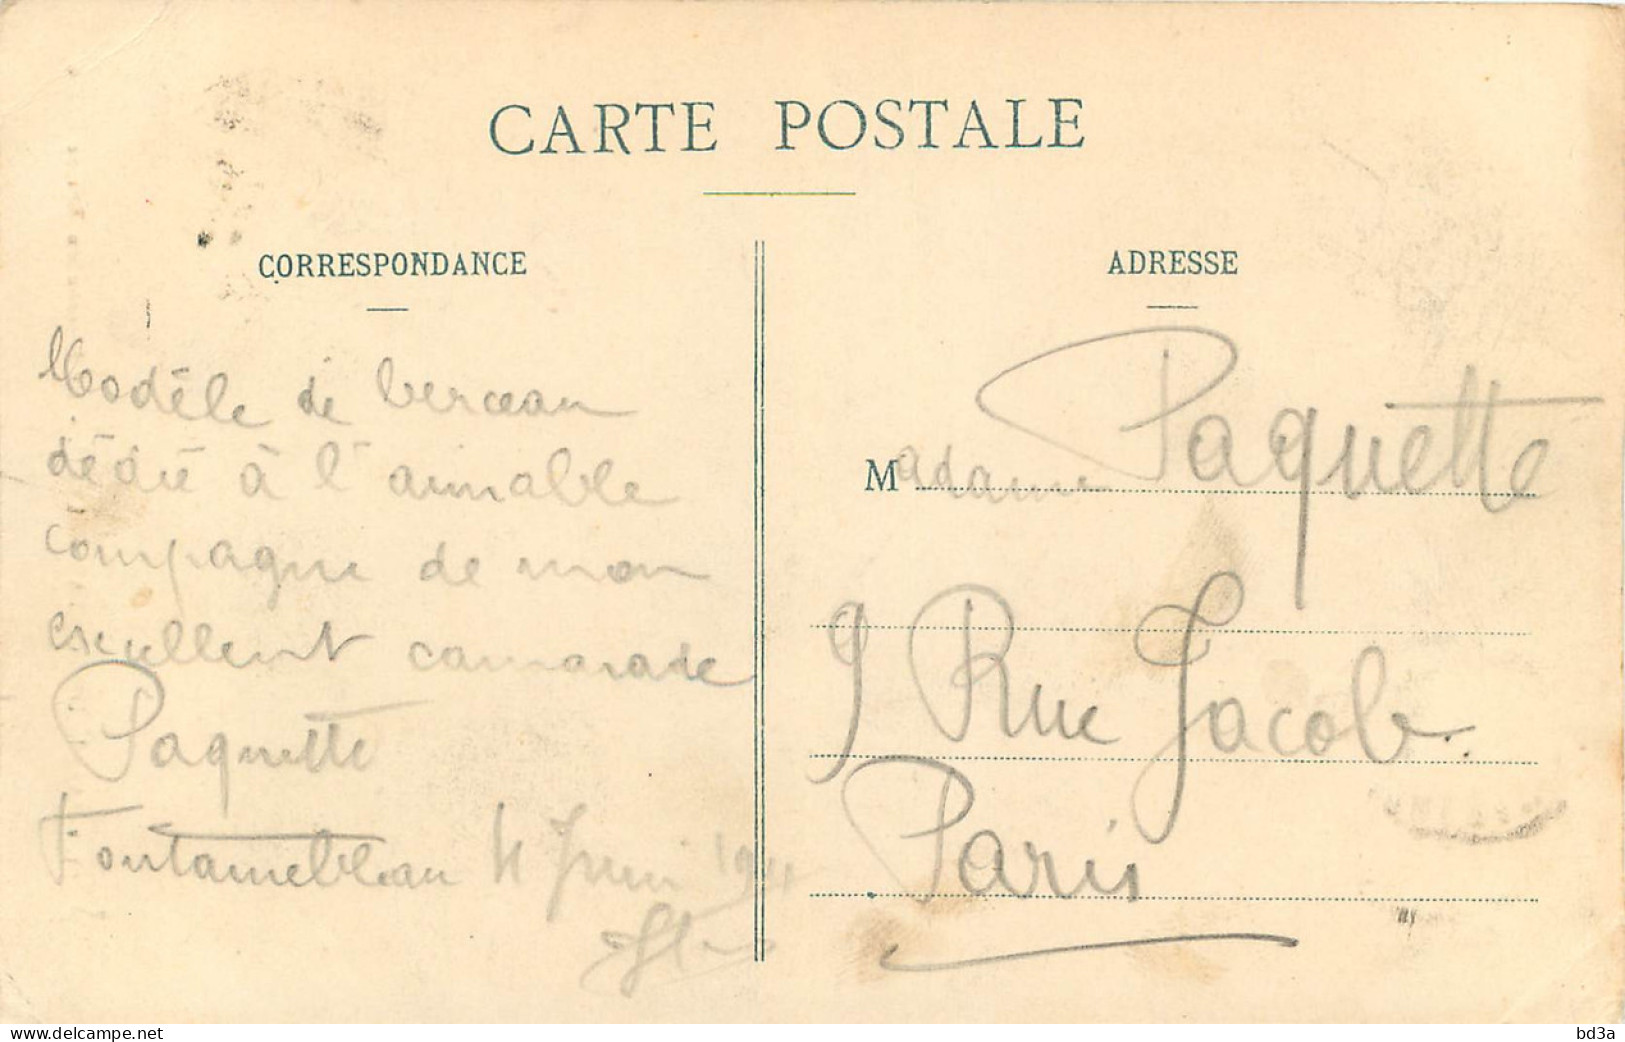 CARTE POSTALE
CORRESPONDANCE
Modèle de berceau
dédié à l'aimable
compagne de mon
excellent camarade
Paquette
Fontainebleau 4 Juin
ADRESSE
Madame Paquette
9 Rue Jacob.
Paris
www.delcampe.net
bd3a